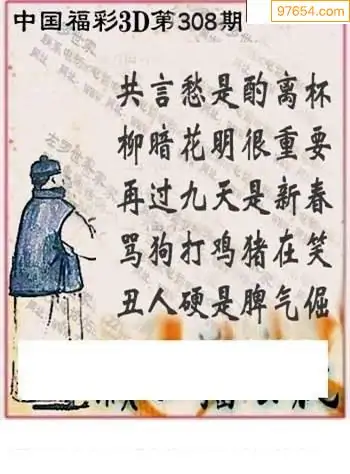 中国福彩3D第308期
97654.com
共言愁是酌离杯
柳暗花明很重要
再过九天是新春
骂狗打鸡猪在笑
丑人硬是脾气倔